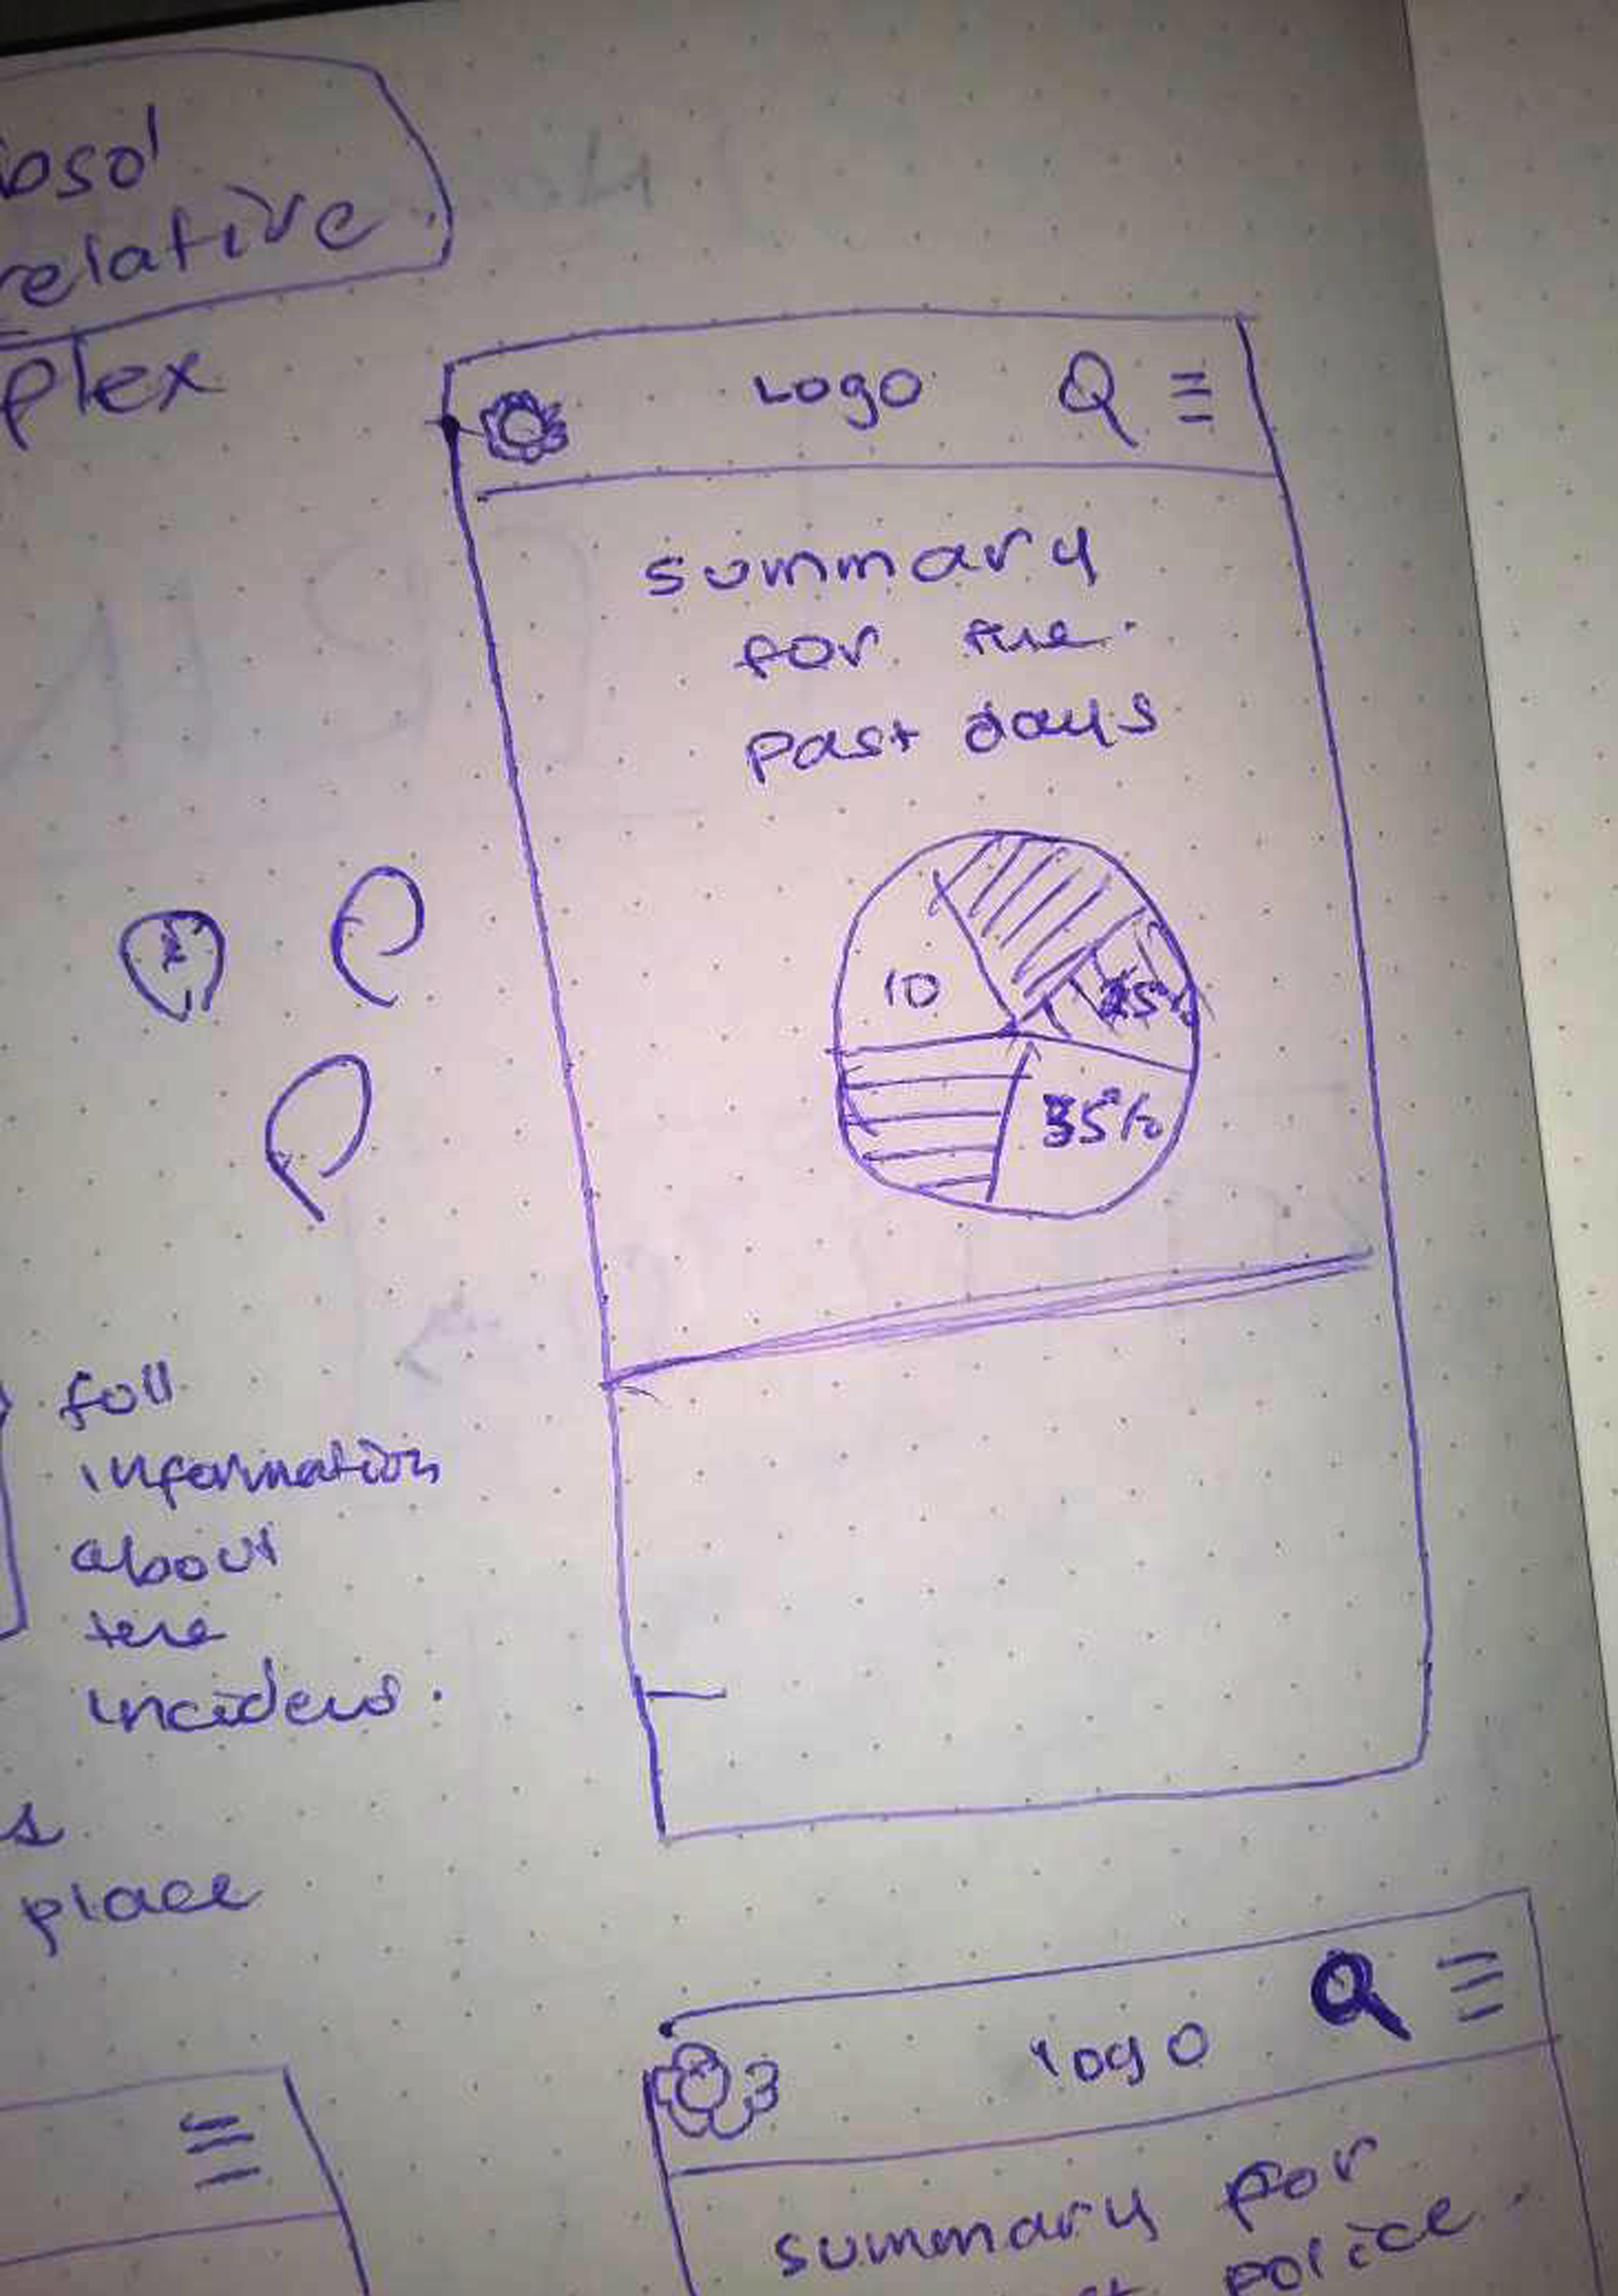 relative
plex
Logo
summary
for the
past days
10
25%
35%
full
information
about
the
s
place
logo
summary for
police